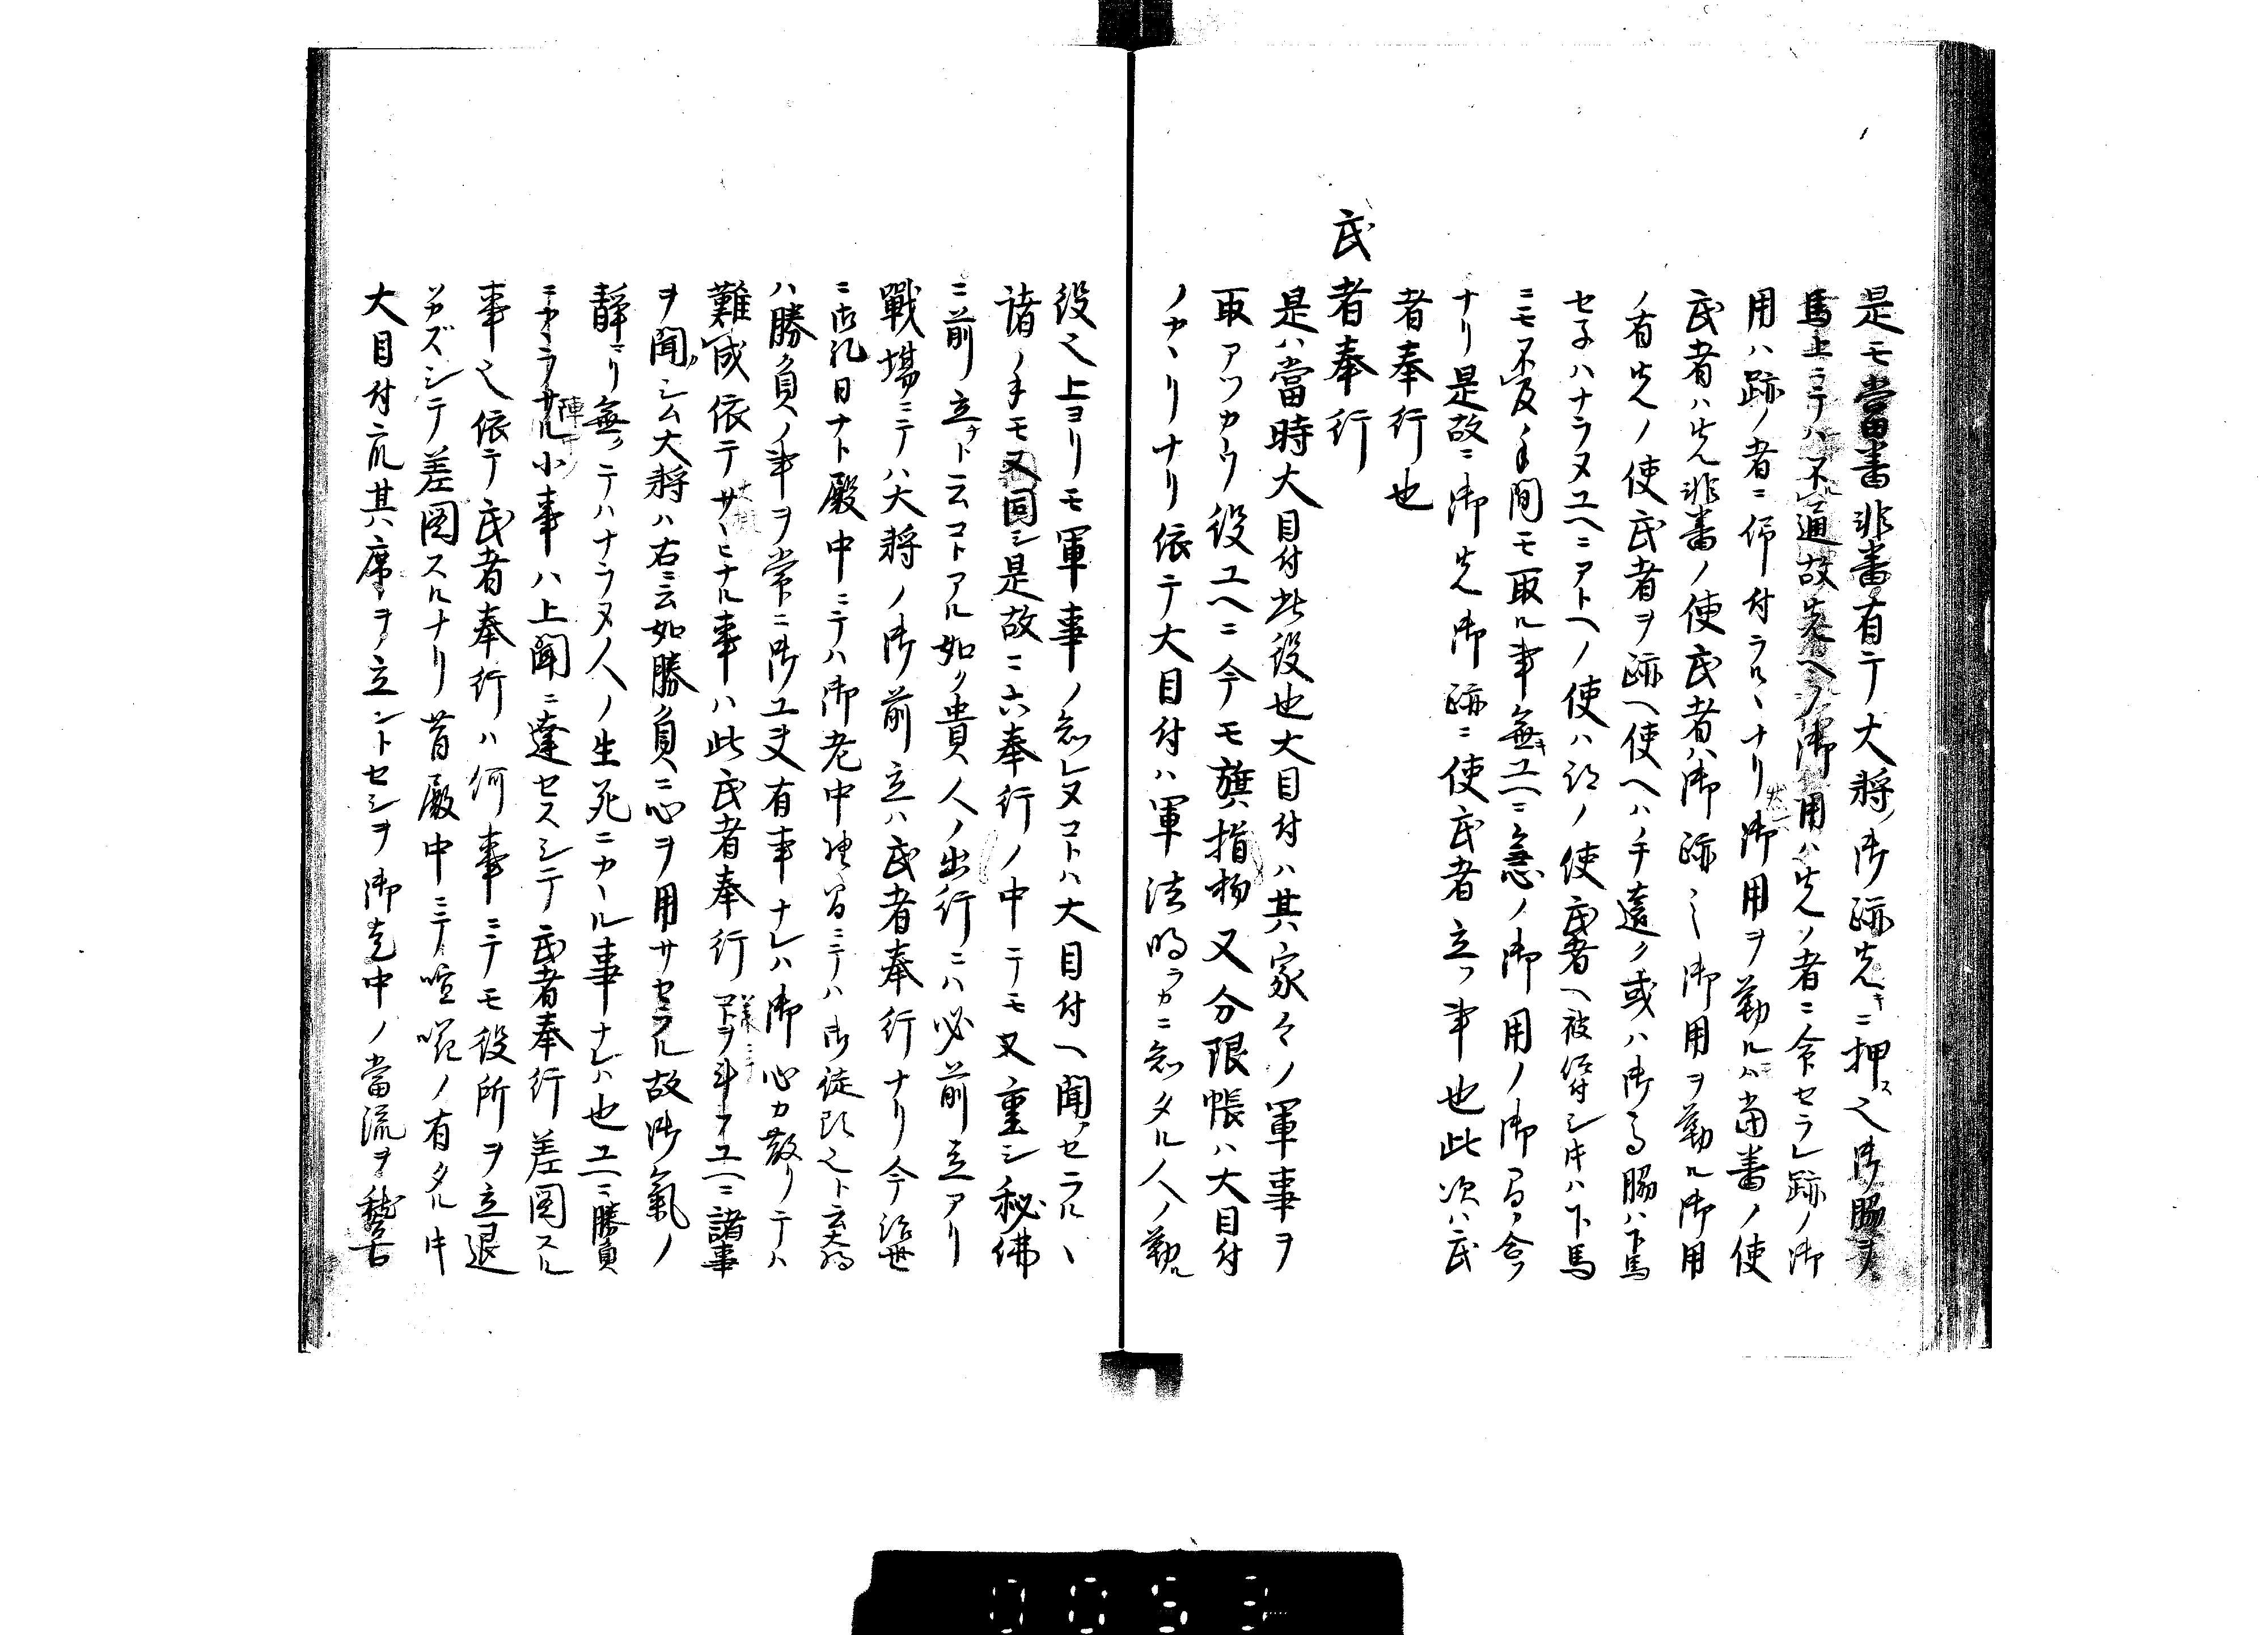 是モ當番非番有テ大将ノ御跡先キニ押ス之御脇ヲ
馬上ニテハ不通故先ヘノ御用ハ先ノ者ニ令セラレ跡ノ御
用ハ跡ノ者ニ仰付ラルヽナリ御用ヲ勤ルハ當番ノ使
武者ハ先非番ノ使武者ハ御跡之御用ヲ勤ル御用
ノ有先ノ使武者ヲ跡ヘ使ヘハ手遠ク或ハ御馬脇ハ下馬
セ子ハナラヌユヘニアトヘノ使ハ跡ノ使武者ヘ被仰付シ時ハ下馬
ニモ不及手間モ取ル事無キユヘニ急ノ御用ノ御間ニ合フ
ナリ是故ニ御先御跡ニ使武者立ツ事也此次ハ武
者奉行也
武者奉行
是ハ當時大目付此役也大目付ハ其家々ノ軍事ヲ
取アツカウ役ユヘニ今モ旗指物又分限帳ハ大目付
ノカヽリナリ依テ大目付ハ軍法明ラカニ知タル人ノ勤ル
役之上ヨリモ軍事ノ知レヌコトハ大目付ヘ聞セラルヽ
諸ノ手モ又同シ是故ニ六奉行ノ中ニテモ又重シ秘佛
ニ前立ナト云コトアル如ク貴人ノ出行ニハ必前立アリ
戰場ニテハ大将ノ御前立ハ武者奉行ナリ今治世
ニ御礼日ナト殿中ニテハ御老中 ニテハ御徒頭之ト云大将
ハ勝負ノ事ヲ常ニ御工夫有事ナレハ御心カ散リテハ
難成依テサヽヒナル事ハ此武者奉行 ユヘニ諸事
ヲ聞シム大将ハ右ニ云如勝負ニ心ヲ用サセラル故御氣ノ
靜リ無クテハナラヌ人ノ生死ニカヽル事ナレハ也ユヘニ勝負
ニカヽラサル小事ハ上聞ニ達セスシテ武者奉行差圖スル
事之依テ武者奉行ハ何事ニテモ役所ヲ立退
カズシテ差圖スルナリ昔殿中ニテ喧嘩ノ有タル時
大目付衆其席ヲ立ントセシヲ御老中ノ當流ヲ稽古